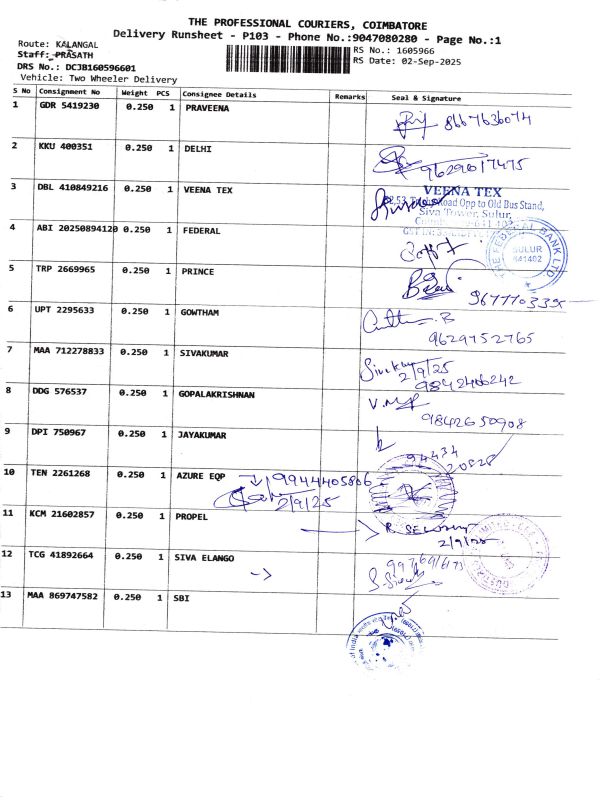 THE PROFESSIONAL COURIERS, COIMBATORE
Delivery Runsheet - P103 - Phone No.:9047080280 - Page No.:1
Route: KALANGAL
Staff: PRASATH
DRS No.: DCJB160596601
Vehicle: Two Wheeler Delivery
RS No.: 1605966
RS Date: 02-Sep-2025
S No Consignment No Weight PCS Consignee Details Remarks Seal & Signature
1 GDR 5419230 0.250 1 PRAVEENA 8667636074
2 KKU 400351 0.250 1 DELHI 9629617475
3 DBL 410849216 0.250 1 VEENA TEX
VEENA TEX
Road Opp to Old Bus Stand,
Siva Tower, Sulur,
4 ABI 20250894120 0.250 1 FEDERAL
THE FEDERAL BANK LTD
SULUR
641402
5 TRP 2669965 0.250 1 PRINCE
6 UPT 2295633 0.250 1 GOWTHAM
9629752765
7 MAA 712278833 0.250 1 SIVAKUMAR
2/9/25
9842406242
8 DDG 576537 0.250 1 GOPALAKRISHNAN
9842650908
9 DPI 750967 0.250 1 JAYAKUMAR
94434
20525
10 TEN 2261268 0.250 1 AZURE EQP 9944405806
2/9/25
11 KCM 21602857 0.250 1 PROPEL
2/9/25
12 TCG 41892664 0.250 1 SIVA ELANGO
13 MAA 869747582 0.250 1 SBI